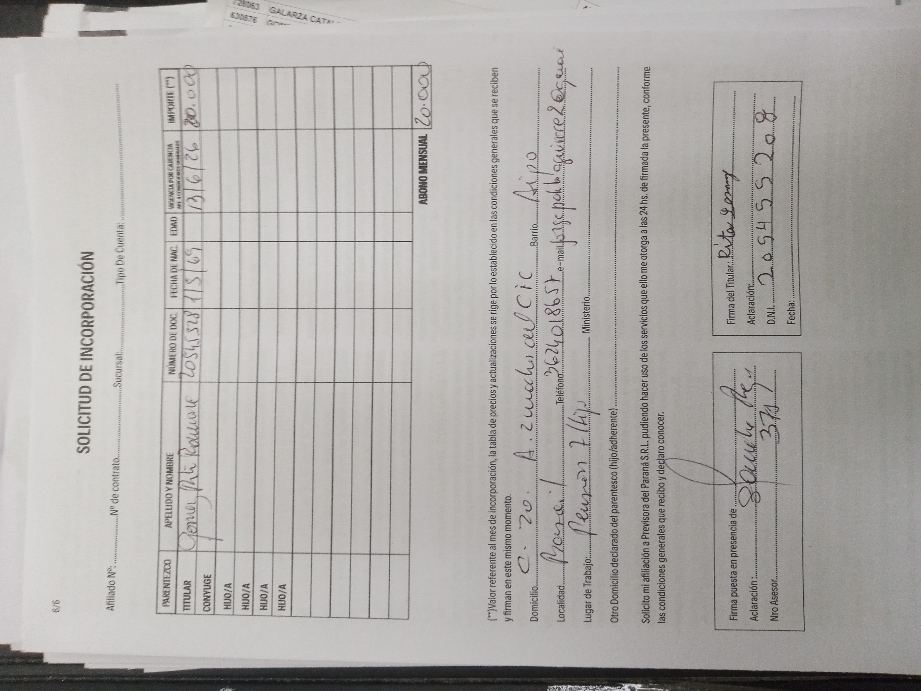 728063 GALARZA CATAL
630876
6/6
SOLICITUD DE INCORPORACIÓN
Afiliado Nº: Nº de contrato Sucursal: Tipo De Cuenta:
PARENTEZCO APELLIDO Y NOMBRE NÚMERO DE DOC. FECHA DE NAC. EDAD VIGENCIA POR CARENCIA IMPORTE (*)
TITULAR Gomez Rita Ramona 20545528 1/5/69 13/6/26 20.000
CONYUGE
HIJO/A
HIJO/A
HIJO/A
HIJO/A
ABONO MENSUAL 20.000
(*)Valor referente al mes de incorporación, la tabla de precios y actualizaciones se rige por lo establecido en las condiciones generales que se reciben
y firman en este mismo momento.
Domicilio C. 20. A. 2 cuadras del CIC Barrio
Localidad Teléfono 3624018657 e-mail
Lugar de Trabajo: Pension 7 Hijos Ministerio
Otro Domicilio declarado del parentesco (hijo/adherente)
Solicito mi afiliación a Previsora del Paraná S.R.L. pudiendo hacer uso de los servicios que ello me otorga a las 24 hs. de firmada la presente, conforme
las condiciones generales que recibo y declaro conocer.
Firma puesta en presencia de
Aclaración:
Nro Asesor
Firma del Titular: Rita Gomez
Aclaración:
D.N.I.
Fecha: